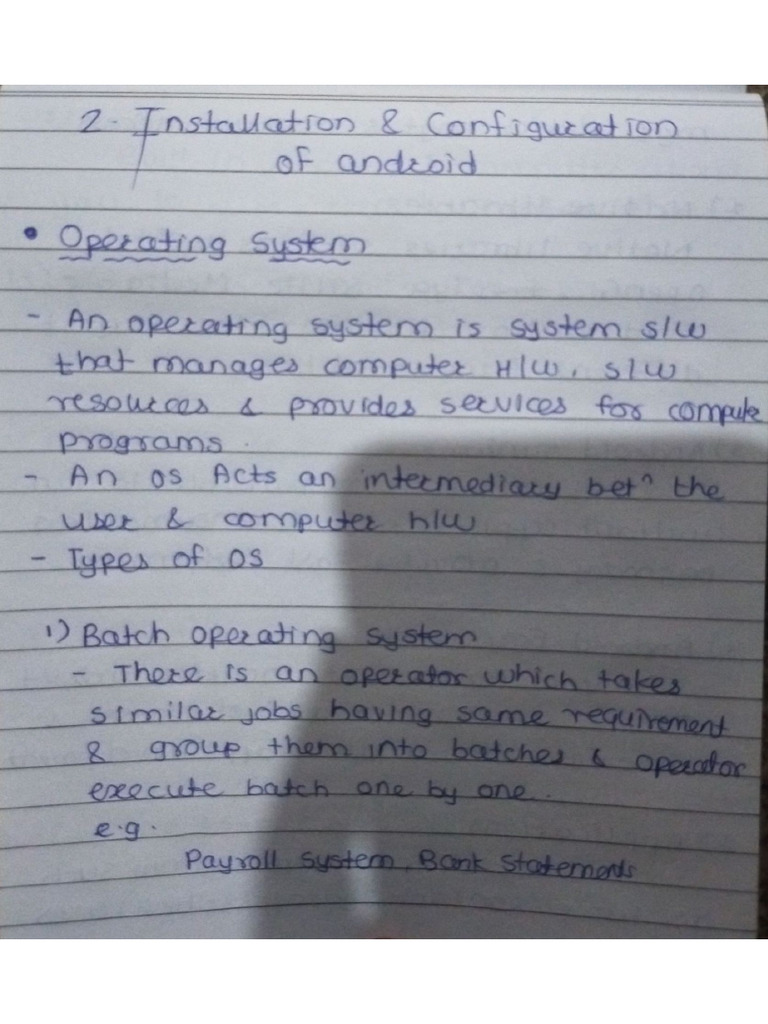 2. Installation & Configuration
of android
• Operating System
- An operating system is system s/w
that manages computer H/W, s/w
resources & provides services for compute
programs.
- An OS Acts an intermediary betⁿ the
user & computer h/w
- Types of OS
1) Batch operating system
- There is an operator which takes
similar jobs having same requirement
& group them into batches & operator
execute batch one by one.
e.g.
Payroll System, Bank Statements